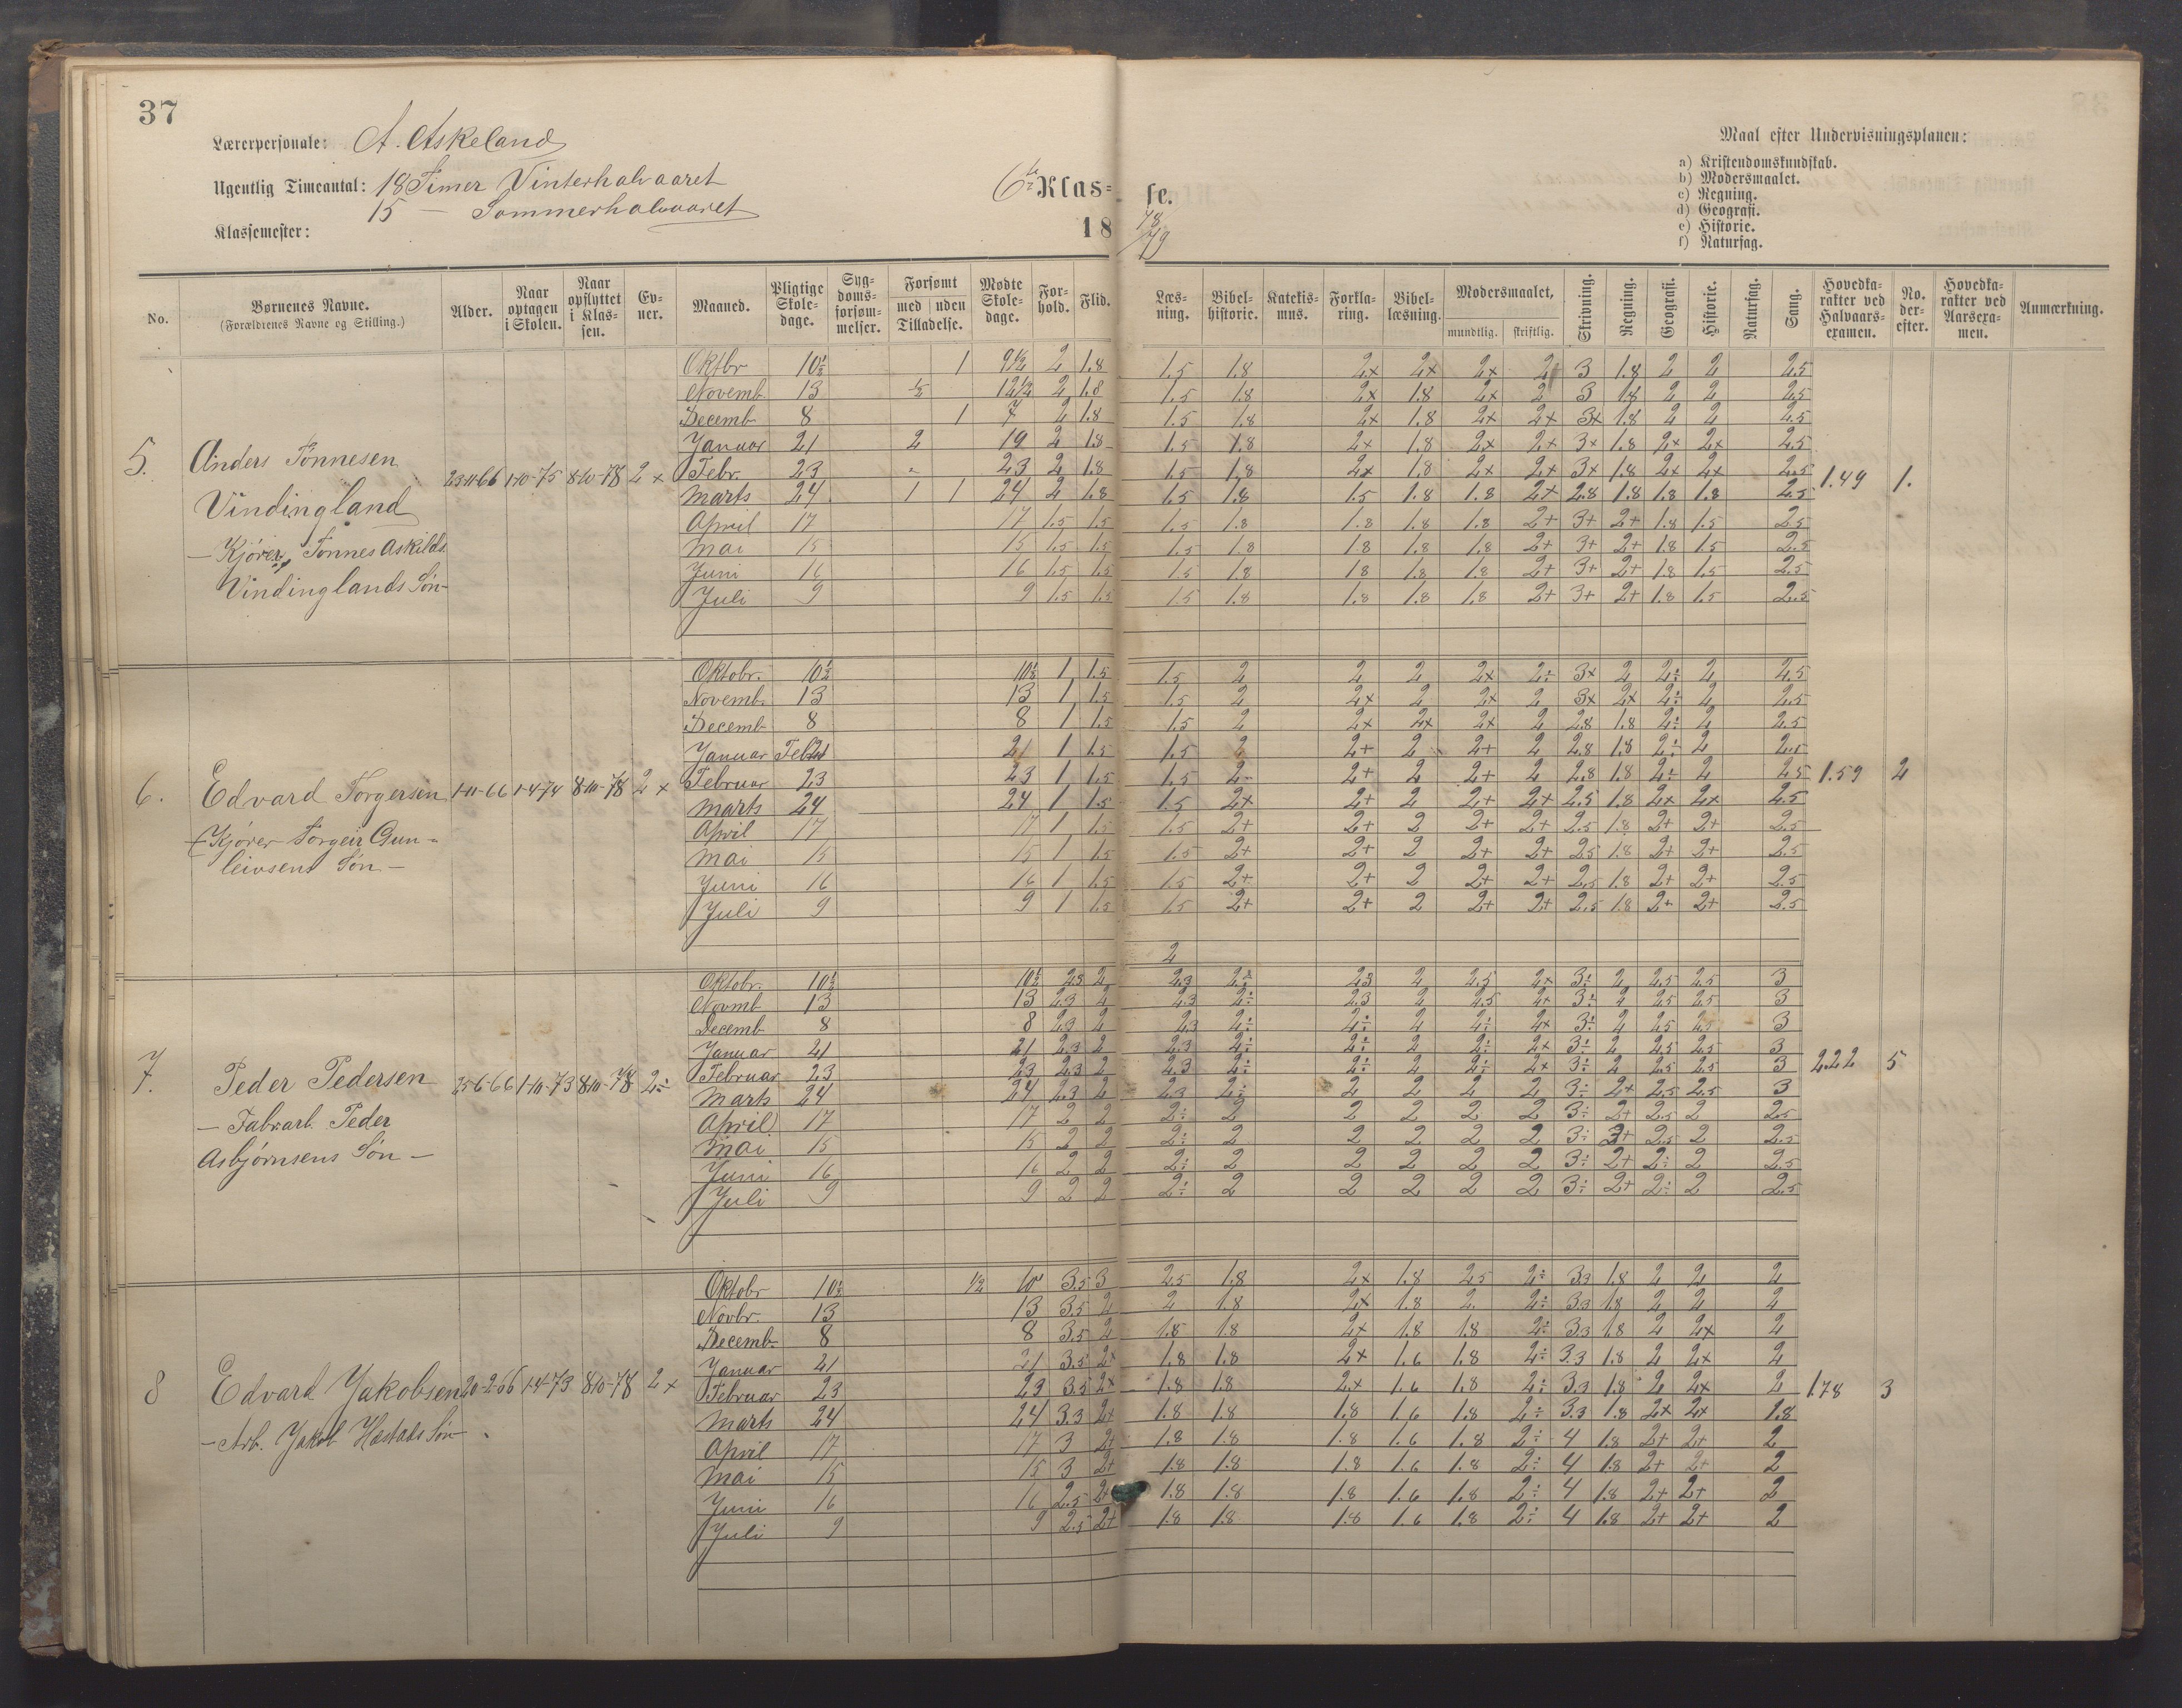 37
Lærerpersonale: A. Askeland
Ugentlig Timeantal: 18 Timer Vinterhalvaaret
15 — Sommerhalvaaret
Klassemester:
6te Klas- se.
18 78/79
Maal efter Undervisningsplanen:
a) Kristendomskundskab.
b) Modersmaalet.
c) Regning.
d) Geografi.
e) Historie.
f) Naturfag.
No. | Børnenes Navne. (Forældrenes Navne og Stilling.) | Alder. | Naar optagen i Skolen. | Naar opflyttet i Klassen. | Evner. | Maaned. | Pligtige Skoledage. | Sygdomsforsømmelser. | Forsømt med | uden Tilladelse. | Mødte Skoledage. | Forhold. | Flid. | Læsning. | Bibelhistorie. | Katekismus. | Forklaring. | Bibellæsning. | Modersmaalet, mundtlig. | skriftlig. | Skrivning. | Regning. | Geografi. | Historie. | Naturfag. | Sang. | Hovedkarakter ved Halvaarsexamen. | No. derefter. | Hovedkarakter ved Aarsexamen. | Anmærkning.
Oktbr 10½ 1 9½ 2 1.8 1.5 1.8 2x 2x 2x 2 3 1.8 2 2 2.5
Novemb. 13 ½ 12½ 2 1.8 1.5 1.8 2x 1.8 2x 2 3 1.8 2 2 2.5
Decemb 8 1 7 2 1.8 1.5 1.8 2x 1.8 2x 2x 3x 1.8 2 2 2.5
Januar 21 2 19 2 1.8 1.5 1.8 2x 1.8 2x 2x 3x 1.8 2x 2x 2.5
5. Anders Tønnesen 23-11-66 1-10-75 8-10-78 2x Febr. 23 23 2 1.8 1.5 1.8 2x 1.8 2x 2x 3x 1.8 2x 2x 2.5 1.49 1.
Vindingland Marts 24 1 1 24 2 1.8 1.5 1.8 1.5 1.8 1.8 2x 2.8 1.8 1.8 1.8 2.5
April 17 17 1.5 1.5 1.5 1.8 1.8 1.8 1.8 2+ 3+ 2+ 1.8 1.5 2.5
— Kjører Tønnes Askilds. Mai 15 15 1.5 1.5 1.5 1.8 1.8 1.8 1.8 2+ 3+ 2+ 1.8 1.5 2.5
Vindinglands Søn- Juni 16 16 1.5 1.5 1.5 1.8 1.8 1.8 1.8 2+ 3+ 2+ 1.8 1.5 2.5
Juli 9 9 1.5 1.5 1.5 1.8 1.8 1.8 1.8 2+ 3+ 2+ 1.8 1.5 2.5
Oktobr. 10½ 10½ 1 1.5 1.5 2 2 2 2x 2÷ 3x 2 2÷ 2 2.5
Novemb. 13 13 1 1.5 1.5 2 2x 2 2x 2 3x 2x 2÷ 2 2.5
Decemb 8 8 1 1.5 1.5 2 2x 2x 2x 2 2.8 1.8 2÷ 2 2.5
Januar 21 21 1 1.5 1.5 2 2+ 2 2+ 2 2.8 1.8 2÷ 2 2.5
6. Edvard Torgersen 1-11-66 1-4-74 8-10-78 2x Februar 23 23 1 1.5 1.5 2 2+ 2 2+ 2 2.8 1.8 2÷ 2 2.5 1.59 2
Marts 24 24 1 1.5 1.5 2x 2+ 2 2+ 2x 2.5 1.8 2x 2x 2.5
— Kjører Torgeir Gun- April 17 17 1 1.5 1.5 2+ 2+ 2 2+ 2+ 2.5 1.8 2+ 2+ 2.5
leivsens Søn — Mai 15 15 1 1.5 1.5 2+ 2+ 2 2+ 2+ 2.5 1.8 2+ 2+ 2.5
Juni 16 16 1 1.5 1.5 2+ 2+ 2 2+ 2+ 2.5 1.8 2+ 2+ 2.5
Juli 9 9 1 1.5 1.5 2+ 2+ 2 2+ 2+ 2.5 1.8 2+ 2+ 2.5
2
Oktobr. 10½ 10½ 2.3 2 2.3 2÷ 2.3 2 2.5 2x 3÷ 2 2.5 2.5 3
Novmb 13 13 2.3 2 2.3 2÷ 2.3 2 2.5 2x 3÷ 2 2.5 2.5 3
Decemb 8 8 2.3 2 2.3 2÷ 2÷ 2 2÷ 2x 3÷ 2 2.5 2.5 3
Januar 21 21 2.3 2 2.3 2÷ 2÷ 2 2÷ 2x 3÷ 2 2.5 2.5 3
7. Peder Pedersen 25-6-66 1-10-73 8-10-78 2÷ Februar 23 23 2.3 2 2.3 2÷ 2÷ 2 2÷ 2x 3÷ 2 2.5 2.5 3 2.22 5
Marts 24 24 2.3 2 2.3 2÷ 2 2 2 2 3÷ 2x 2.5 2.5 3
— Fabrarb. Peder April 17 17 2 2 2÷ 2 2 2 2 2 3÷ 2+ 2.5 2 2.5
Asbjørnsens Søn — Mai 15 15 2 2 2÷ 2 2 2 2 2 3÷ 2+ 2.5 2 2.5
Juni 16 16 2 2 2÷ 2 2 2 2 2 3÷ 2+ 2÷ 2 2.5
Juli 9 9 2 2 2÷ 2 2 2 2 2 3÷ 2+ 2÷ 2 2.5
Oktobr 10½ ½ 10 3.5 3 2.5 1.8 2x 1.8 2.5 2÷ 3.3 1.8 2 2 2
Novbr. 13 13 3.5 2 2 1.8 2x 1.8 2 2÷ 3.3 1.8 2 2 2
Decemb. 8 8 3.5 2 1.8 1.8 2x 1.8 1.8 2÷ 3.3 1.8 2 2x 2
Januar 21 21 3.5 2x 1.8 1.8 2x 1.6 1.8 2÷ 3.3 1.8 2 2x 2
8 Edvard Jakobsen 20-2-66 1-4-73 8-10-78 2x Februar 23 23 3.5 2x 1.8 1.8 2x 1.6 1.8 2÷ 3.3 1.8 2 2x 2 1.78 3
Marts 24 24 3.3 2x 1.8 1.8 1.8 1.6 1.8 2÷ 3.3 1.8 2x 2x 1.8
— Arb. Jakob Hæstads Søn — April 17 17 3 2+ 1.8 1.8 1.8 1.6 1.8 2÷ 4 1.8 2+ 2+ 2
Mai 15 15 3 2+ 1.8 1.8 1.8 1.6 1.8 2÷ 4 1.8 2+ 2+ 2
Juni 16 16 2.5 2+ 1.8 1.8 1.8 1.6 1.8 2÷ 4 1.8 2+ 2+ 2
Juli 9 9 2.5 2+ 1.8 1.8 1.8 1.6 1.8 2÷ 4 1.8 2+ 2+ 2